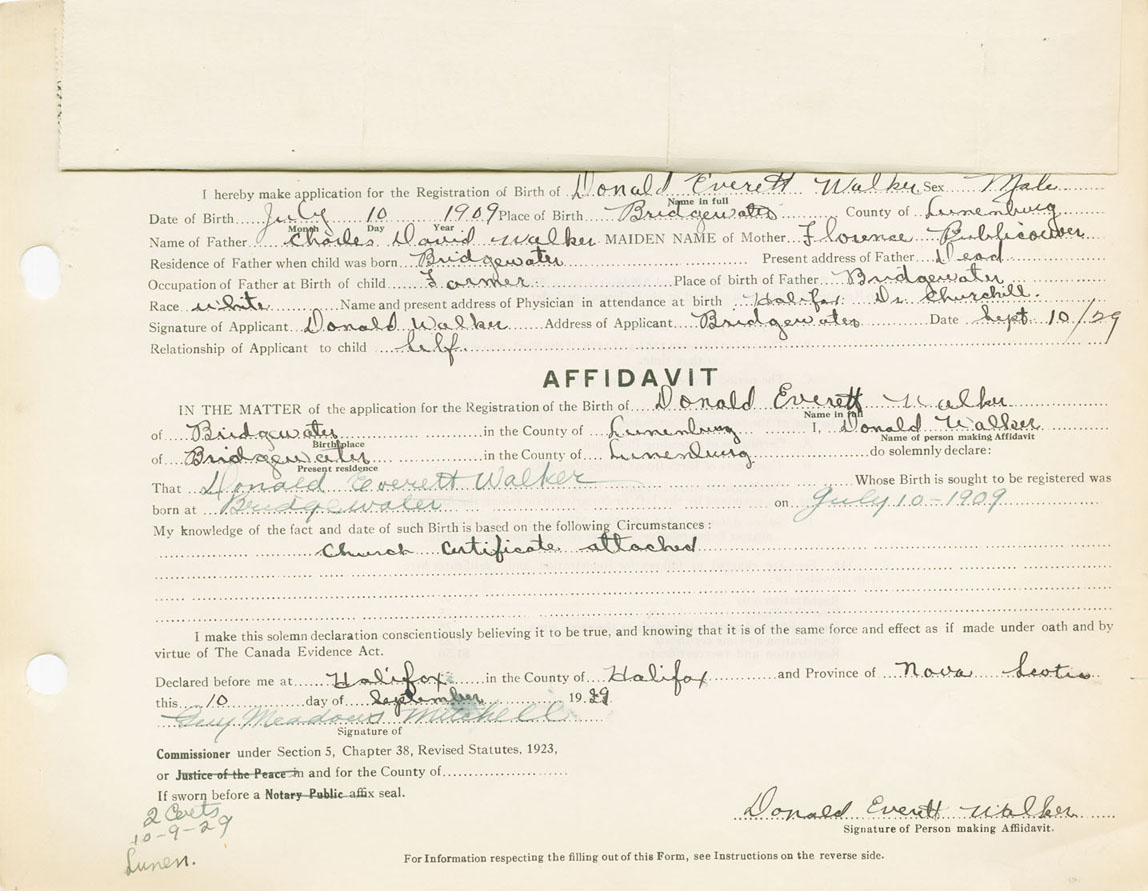 I hereby make application for the Registration of Birth of Donald Everett Walker Sex Male
Name in full
Date of Birth July 10 1909 Place of Birth Bridgewater County of Lunenburg
Month Day Year
Name of Father Charles David Walker MAIDEN NAME of Mother Florence Publicover
Residence of Father when child was born Bridgewater Present address of Father Dead
Occupation of Father at Birth of child Farmer Place of birth of Father Bridgewater
Race white Name and present address of Physician in attendance at birth Halifax Dr. Churchill.
Signature of Applicant Donald Walker Address of Applicant Bridgewater Date Sept 10/29
Relationship of Applicant to child Self
AFFIDAVIT
IN THE MATTER of the application for the Registration of the Birth of Donald Everett Walker
Name in full
of Bridgewater in the County of Lunenburg I, Donald Walker
Birthplace Name of person making Affidavit
of Bridgewater in the County of Lunenburg do solemnly declare:
Present residence
That Donald Everett Walker Whose Birth is sought to be registered was
born at Bridgewater on July 10-1909
My knowledge of the fact and date of such Birth is based on the following Circumstances :
Church Certificate attached
I make this solemn declaration conscientiously believing it to be true, and knowing that it is of the same force and effect as if made under oath and by
virtue of The Canada Evidence Act.
Declared before me at Halifax in the County of Halifax and Province of Nova Scotia
this 10 day of September 1929
Guy Meadows Mitchell
Signature of
Commissioner under Section 5, Chapter 38, Revised Statutes, 1923,
or Justice of the Peace in and for the County of
If sworn before a Notary Public affix seal.
2 Certs
10-9-29
Lunen.
Donald Everett Walker
Signature of Person making Affiidavit.
For Information respecting the filling out of this Form, see Instructions on the reverse side.